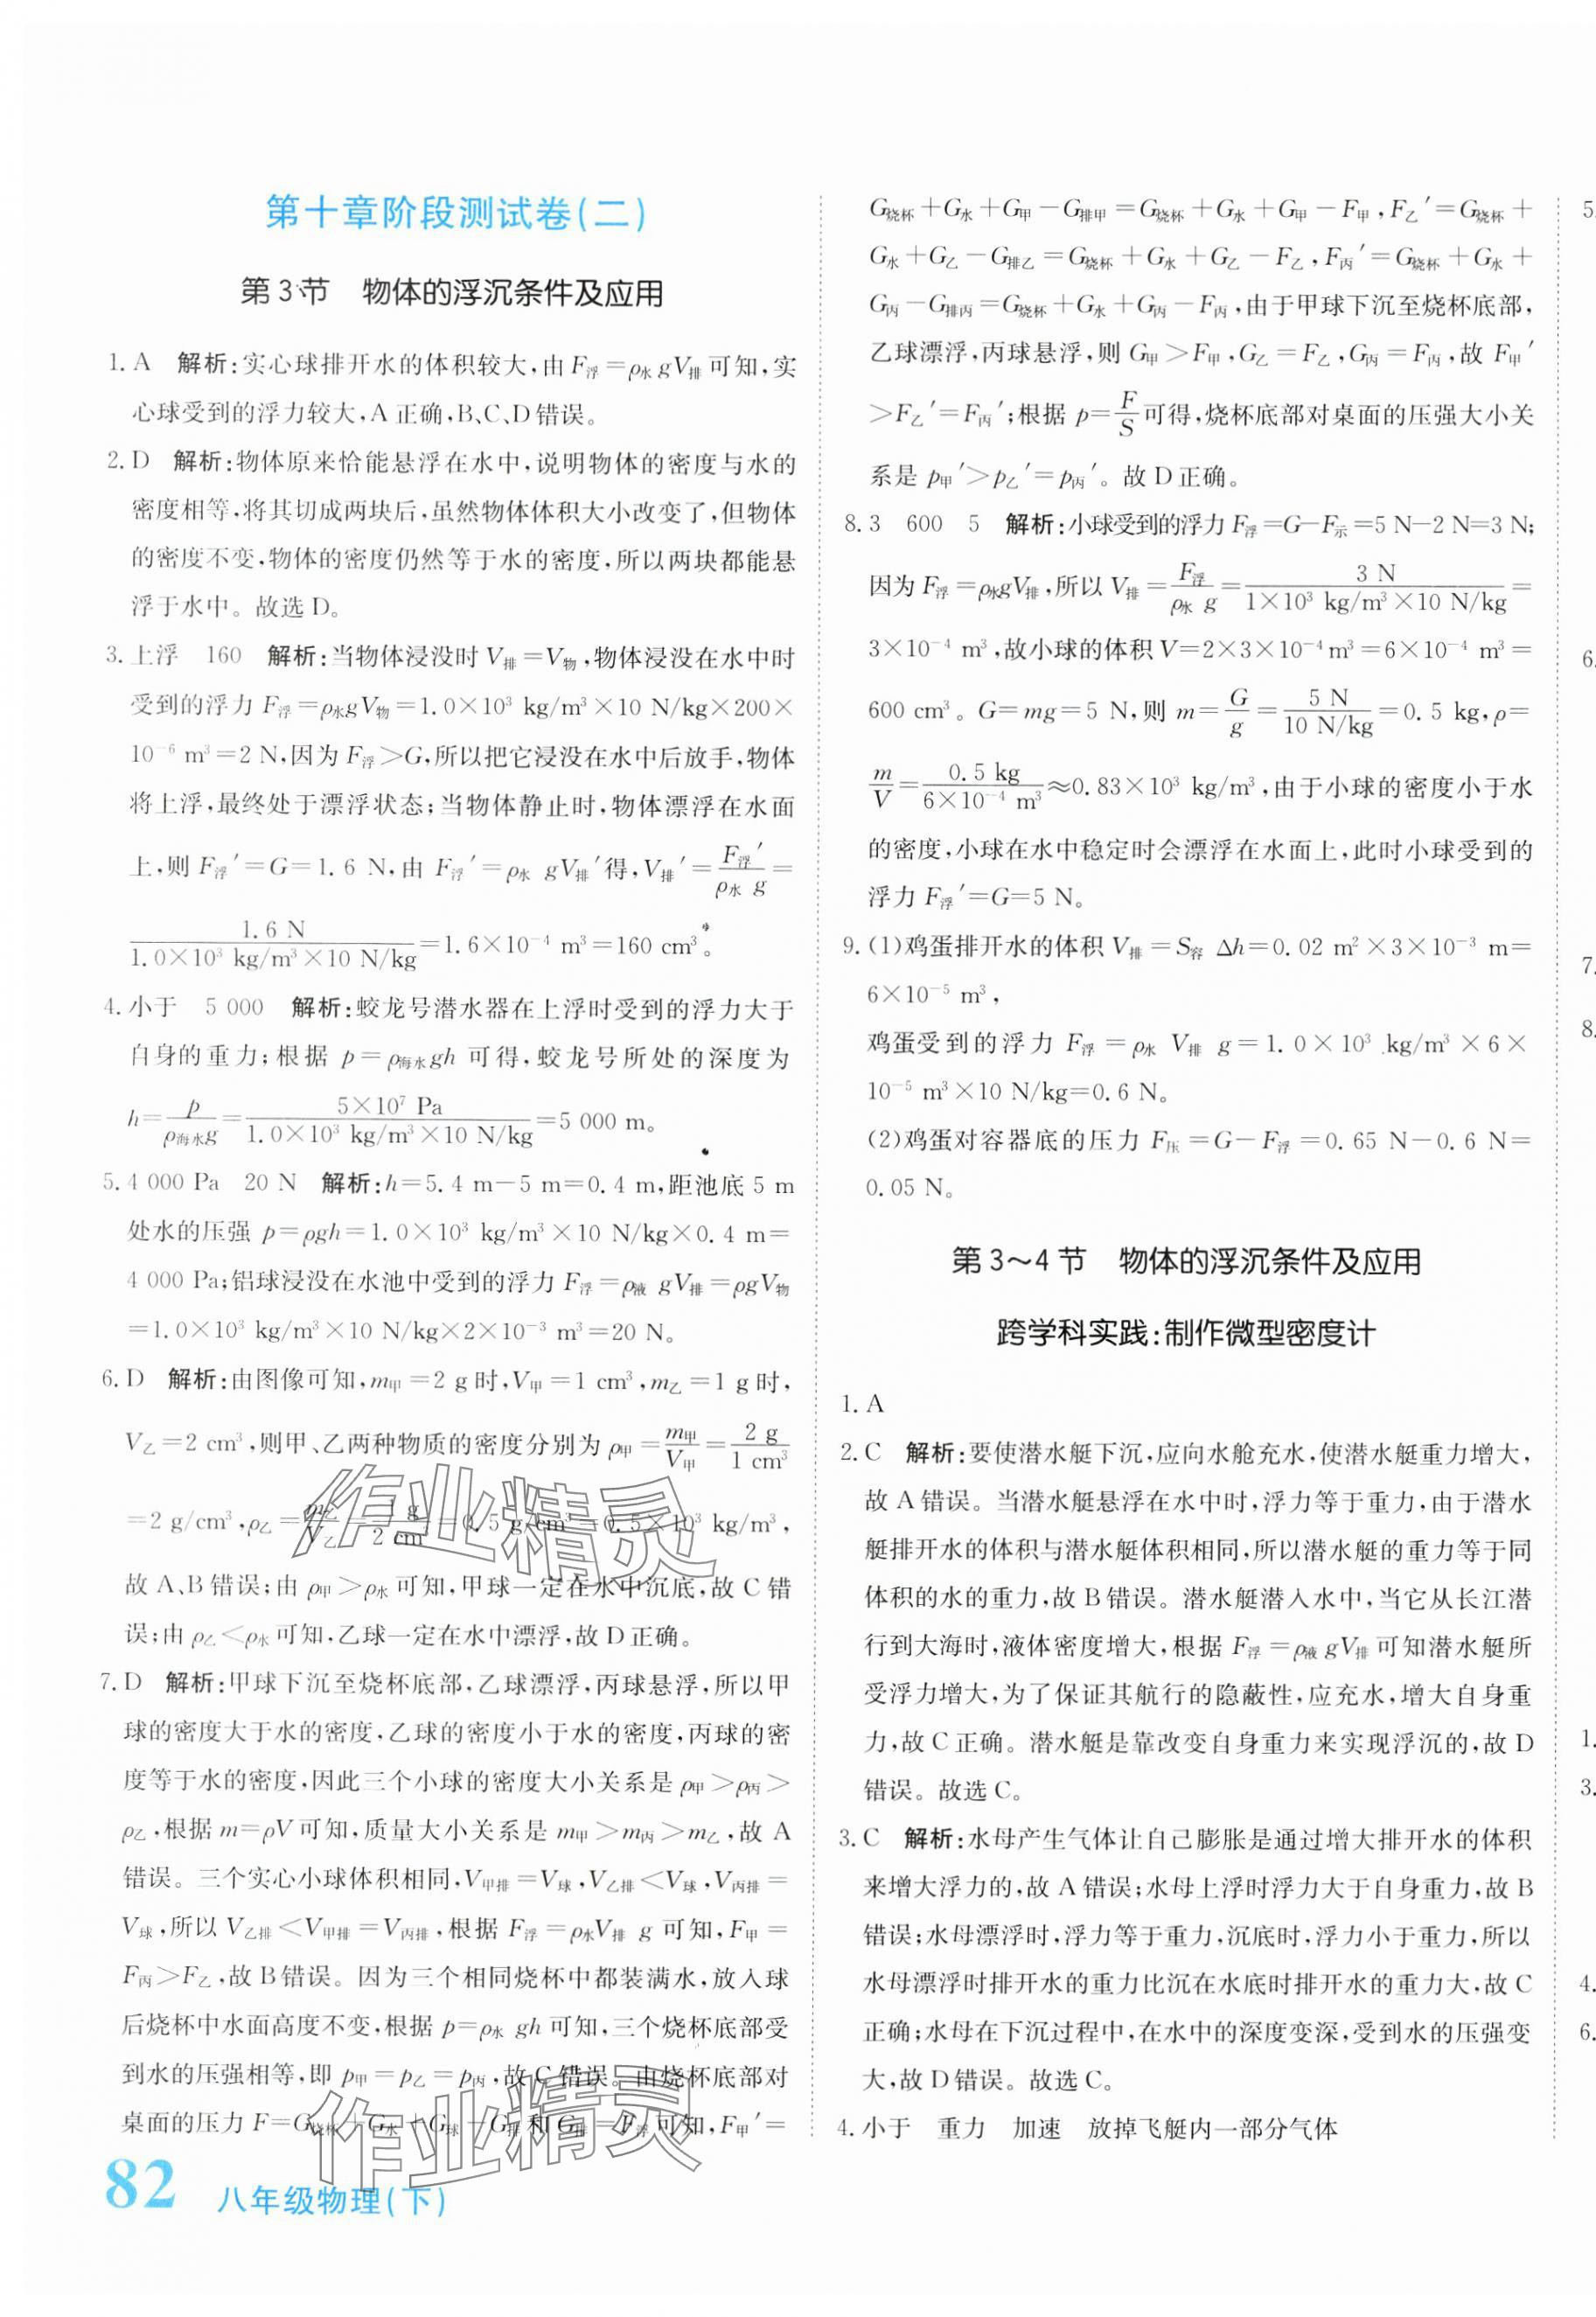 第十章阶段测试卷(二)
第3节 物体的浮沉条件及应用
1. A 解析:实心球排开水的体积较大,由 F浮=ρ水 gV排可知,实
心球受到的浮力较大,A正确,B、C、D错误。
2. D 解析:物体原来恰能悬浮在水中,说明物体的密度与水的
密度相等,将其切成两块后,虽然物体体积大小改变了,但物体
的密度不变,物体的密度仍然等于水的密度,所以两块都能悬
浮于水中。故选D。
3. 上浮 160 解析:当物体浸没时 V排=V物,物体浸没在水中时
受到的浮力 F浮=ρ水gV物=1.0×10³ kg/m³×10 N/kg×200×
10⁻⁶ m³=2 N,因为 F浮>G,所以把它浸没在水中后放手,物体
将上浮,最终处于漂浮状态;当物体静止时,物体漂浮在水面
上,则 F浮′=G=1.6 N,由 F浮′=ρ水 gV排′得,V排′=F浮′/(ρ水 g)=
1.6 N/(1.0×10³ kg/m³×10 N/kg)=1.6×10⁻⁴ m³=160 cm³。
4. 小于 5 000 解析:蛟龙号潜水器在上浮时受到的浮力大于
自身的重力;根据 p=ρ海水gh 可得,蛟龙号所处的深度为
h=p/(ρ海水g)=5×10⁷ Pa/(1.0×10³ kg/m³×10 N/kg)=5 000 m。
5. 4 000 Pa 20 N 解析:h=5.4 m-5 m=0.4 m,距池底 5 m
处水的压强 p=ρgh=1.0×10³ kg/m³×10 N/kg×0.4 m=
4 000 Pa;铝球浸没在水池中受到的浮力 F浮=ρ液 gV排=ρgV物
=1.0×10³ kg/m³×10 N/kg×2×10⁻³ m³=20 N。
6. D 解析:由图像可知,m甲=2 g时,V甲=1 cm³,m乙=1 g时,
V乙=2 cm³,则甲、乙两种物质的密度分别为 ρ甲=m甲/V甲=2 g/1 cm³
=2 g/cm³,ρ乙=m乙/V乙=1 g/2 cm³=0.5 g/cm³=0.5×10³ kg/m³,
故A、B错误;由 ρ甲>ρ水可知,甲球一定在水中沉底,故C错
误;由 ρ乙<ρ水可知,乙球一定在水中漂浮,故D正确。
7. D 解析:甲球下沉至烧杯底部,乙球漂浮,丙球悬浮,所以甲
球的密度大于水的密度,乙球的密度小于水的密度,丙球的密
度等于水的密度,因此三个小球的密度大小关系是 ρ甲>ρ丙>
ρ乙,根据 m=ρV可知,质量大小关系是 m甲>m丙>m乙,故A
错误。三个实心小球体积相同,V甲排=V球,V乙排<V球,V丙排=
V球,所以 V乙排<V甲排=V丙排,根据 F浮=ρ水V排 g 可知,F甲=
F丙>F乙,故B错误。因为三个相同烧杯中都装满水,放入球
后烧杯中水面高度不变,根据 p=ρ水 gh 可知,三个烧杯底部受
到水的压强相等,即 p甲=p乙=p丙,故C错误。由烧杯底部对
桌面的压力 F=G烧杯+G水+G球-G排和G排=F浮可知,F甲′=
82 八年级物理(下)
G烧杯+G水+G甲-G排甲=G烧杯+G水+G甲-F甲,F乙′=G烧杯+
G水+G乙-G排乙=G烧杯+G水+G乙-F乙,F丙′=G烧杯+G水+
G丙-G排丙=G烧杯+G水+G丙-F丙,由于甲球下沉至烧杯底部,
乙球漂浮,丙球悬浮,则 G甲>F甲,G乙=F乙,G丙=F丙,故 F甲′
>F乙′=F丙′;根据 p=F/S可得,烧杯底部对桌面的压强大小关
系是 p甲′>p乙′=p丙′。故D正确。
8. 3 600 5 解析:小球受到的浮力 F浮=G-F示=5 N-2 N=3 N;
因为 F浮=ρ水gV排,所以 V排=F浮/(ρ水 g)=3 N/(1×10³ kg/m³×10 N/kg)=
3×10⁻⁴ m³,故小球的体积 V=2×3×10⁻⁴ m³=6×10⁻⁴ m³=
600 cm³。G=mg=5 N,则 m=G/g=5 N/(10 N/kg)=0.5 kg,ρ=
m/V=0.5 kg/(6×10⁻⁴ m³)≈0.83×10³ kg/m³,由于小球的密度小于水
的密度,小球在水中稳定时会漂浮在水面上,此时小球受到的
浮力 F浮′=G=5 N。
9. (1)鸡蛋排开水的体积 V排=S容 Δh=0.02 m²×3×10⁻³ m=
6×10⁻⁵ m³,
鸡蛋受到的浮力 F浮=ρ水 V排 g=1.0×10³ kg/m³×6×
10⁻⁵ m³×10 N/kg=0.6 N。
(2)鸡蛋对容器底的压力 F压=G-F浮=0.65 N-0.6 N=
0.05 N。
第3~4节 物体的浮沉条件及应用
跨学科实践:制作微型密度计
1. A
2. C 解析:要使潜水艇下沉,应向水舱充水,使潜水艇重力增大,
故A错误。当潜水艇悬浮在水中时,浮力等于重力,由于潜水
艇排开水的体积与潜水艇体积相同,所以潜水艇的重力等于同
体积的水的重力,故B错误。潜水艇潜入水中,当它从长江潜
行到大海时,液体密度增大,根据 F浮=ρ液 gV排可知潜水艇所
受浮力增大,为了保证其航行的隐蔽性,应充水,增大自身重
力,故C正确。潜水艇是靠改变自身重力来实现浮沉的,故D
错误。故选C。
3. C 解析:水母产生气体让自己膨胀是通过增大排开水的体积
来增大浮力的,故A错误;水母上浮时浮力大于自身重力,故B
错误;水母漂浮时,浮力等于重力,沉底时,浮力小于重力,所以
水母漂浮时排开水的重力比沉在水底时排开水的重力大,故C
正确;水母在下沉过程中,在水中的深度变深,受到水的压强变
大,故D错误。故选C。
4. 小于 重力 加速 放掉飞艇内一部分气体
5.
6.
7.
8.
1.
3.
4.
6.
作业精灵
作业精灵